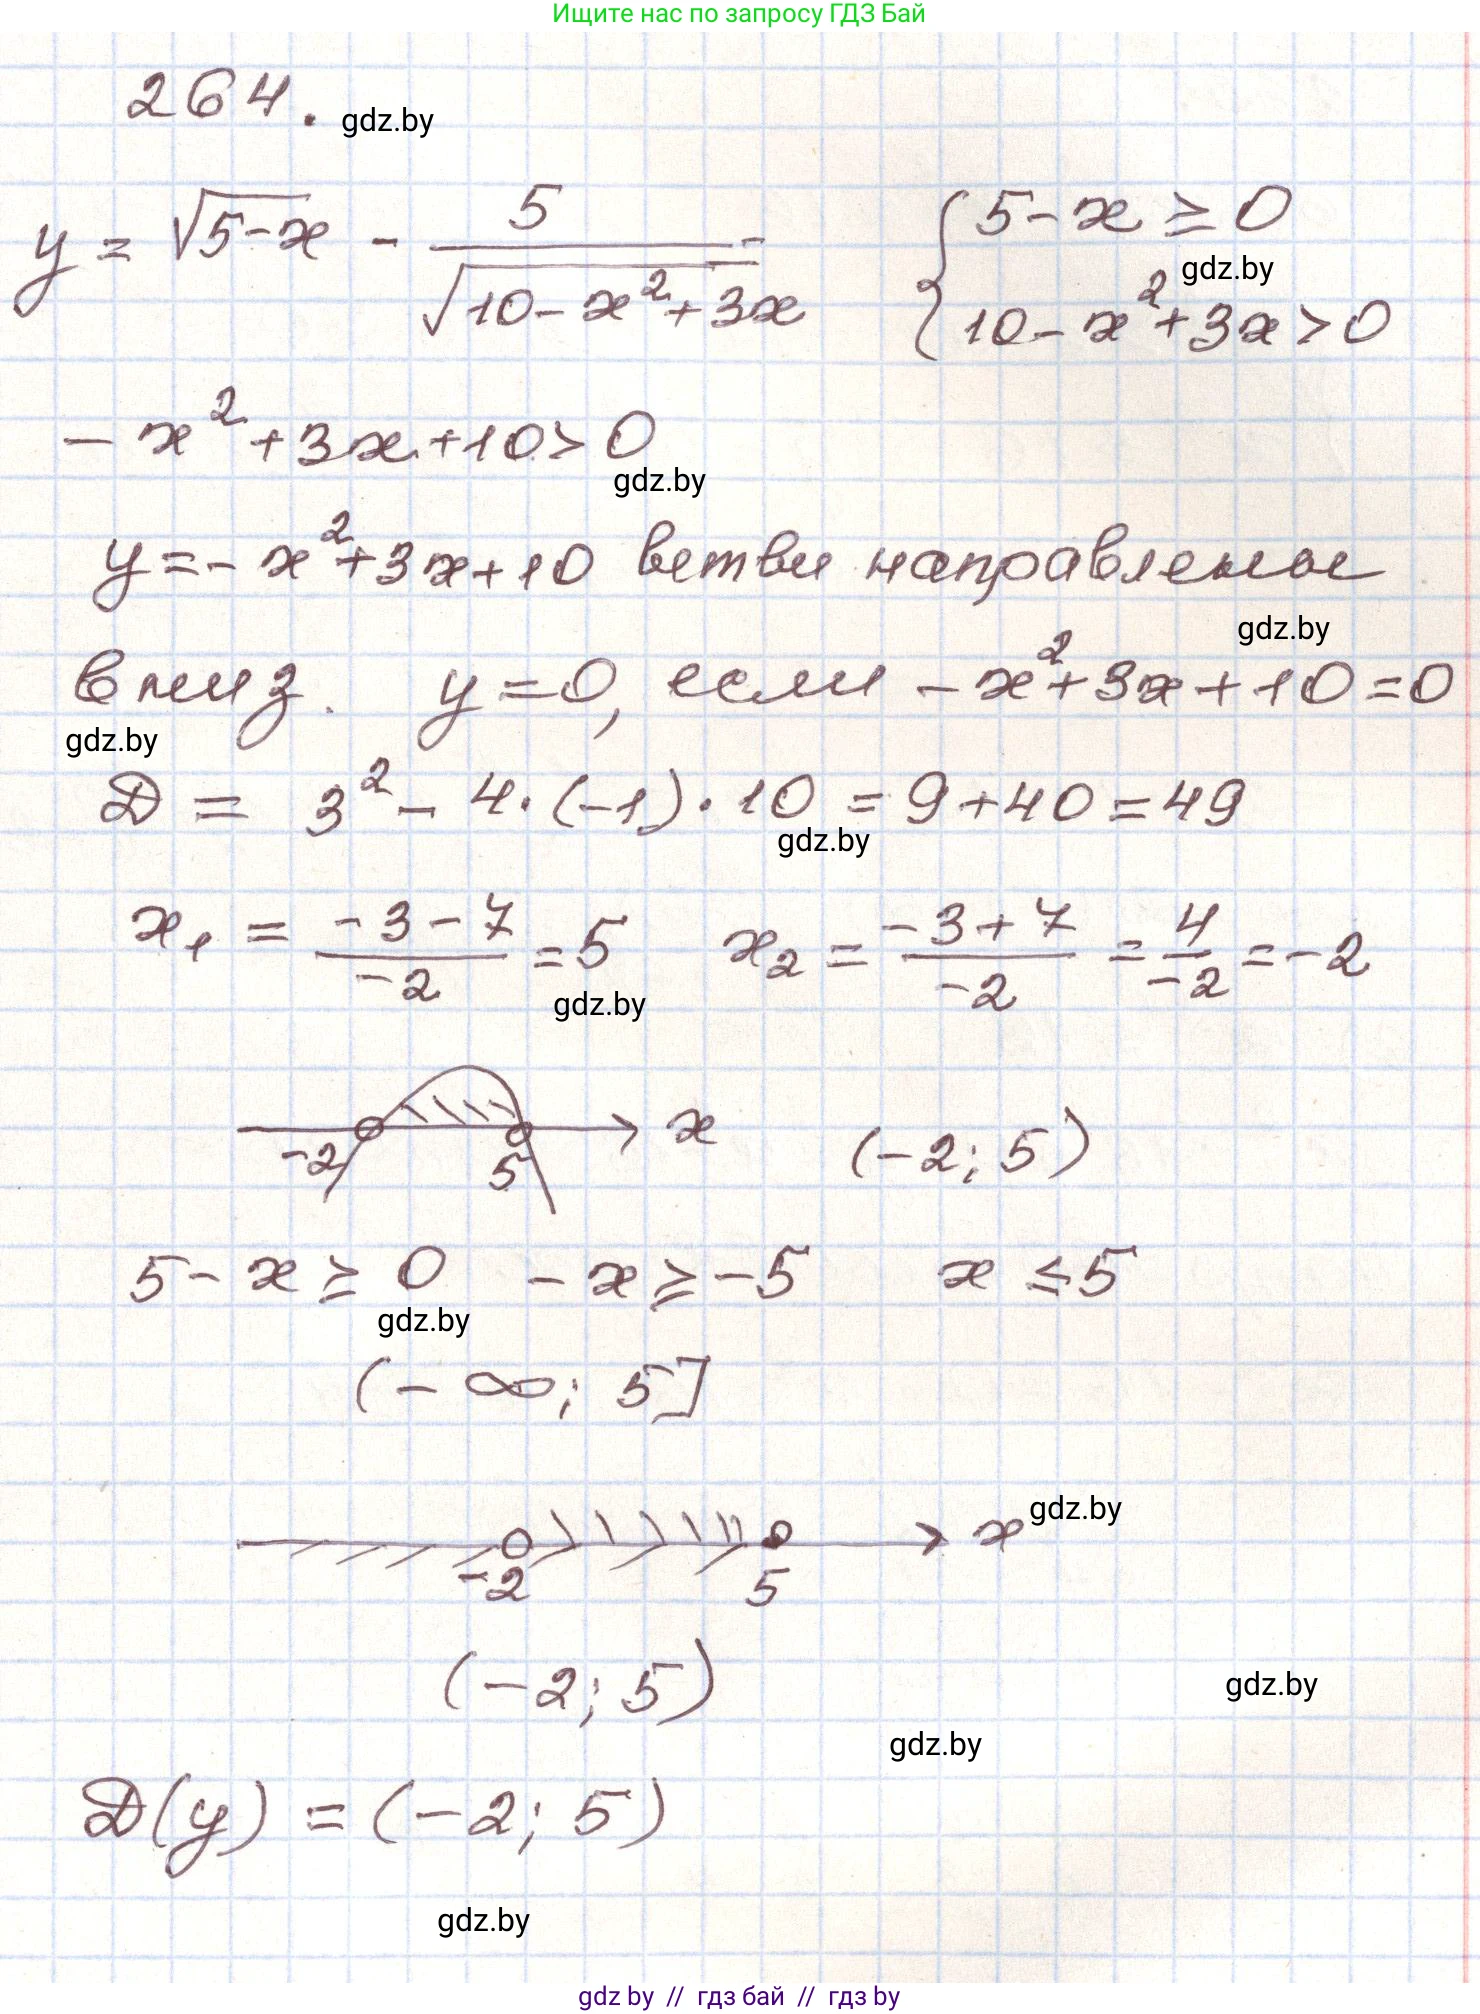 Ищите нас по запросу ГДЗ Бай
264. gdz.by
y = √(5-x) - 5/√(10-x²+3x) { 5-x ≥ 0
gdz.by
10-x²+3x>0
-x²+3x+10>0
gdz.by
y=-x²+3x+10 ветви направлены
gdz.by
вниз. y=0, если -x²+3x+10=0
gdz.by
D = 3² - 4·(-1)·10 = 9+40=49
gdz.by
x₁ = (-3-7)/(-2) = 5 x₂ = (-3+7)/(-2) = 4/(-2) = -2
gdz.by
-2 5 x (-2; 5)
5-x ≥ 0 -x ≥ -5 x ≤ 5
gdz.by
(-∞; 5]
gdz.by
-2 5 x
(-2; 5)
gdz.by
gdz.by
D(y) = (-2; 5)
gdz.by
gdz by // гдз бай // гдз by